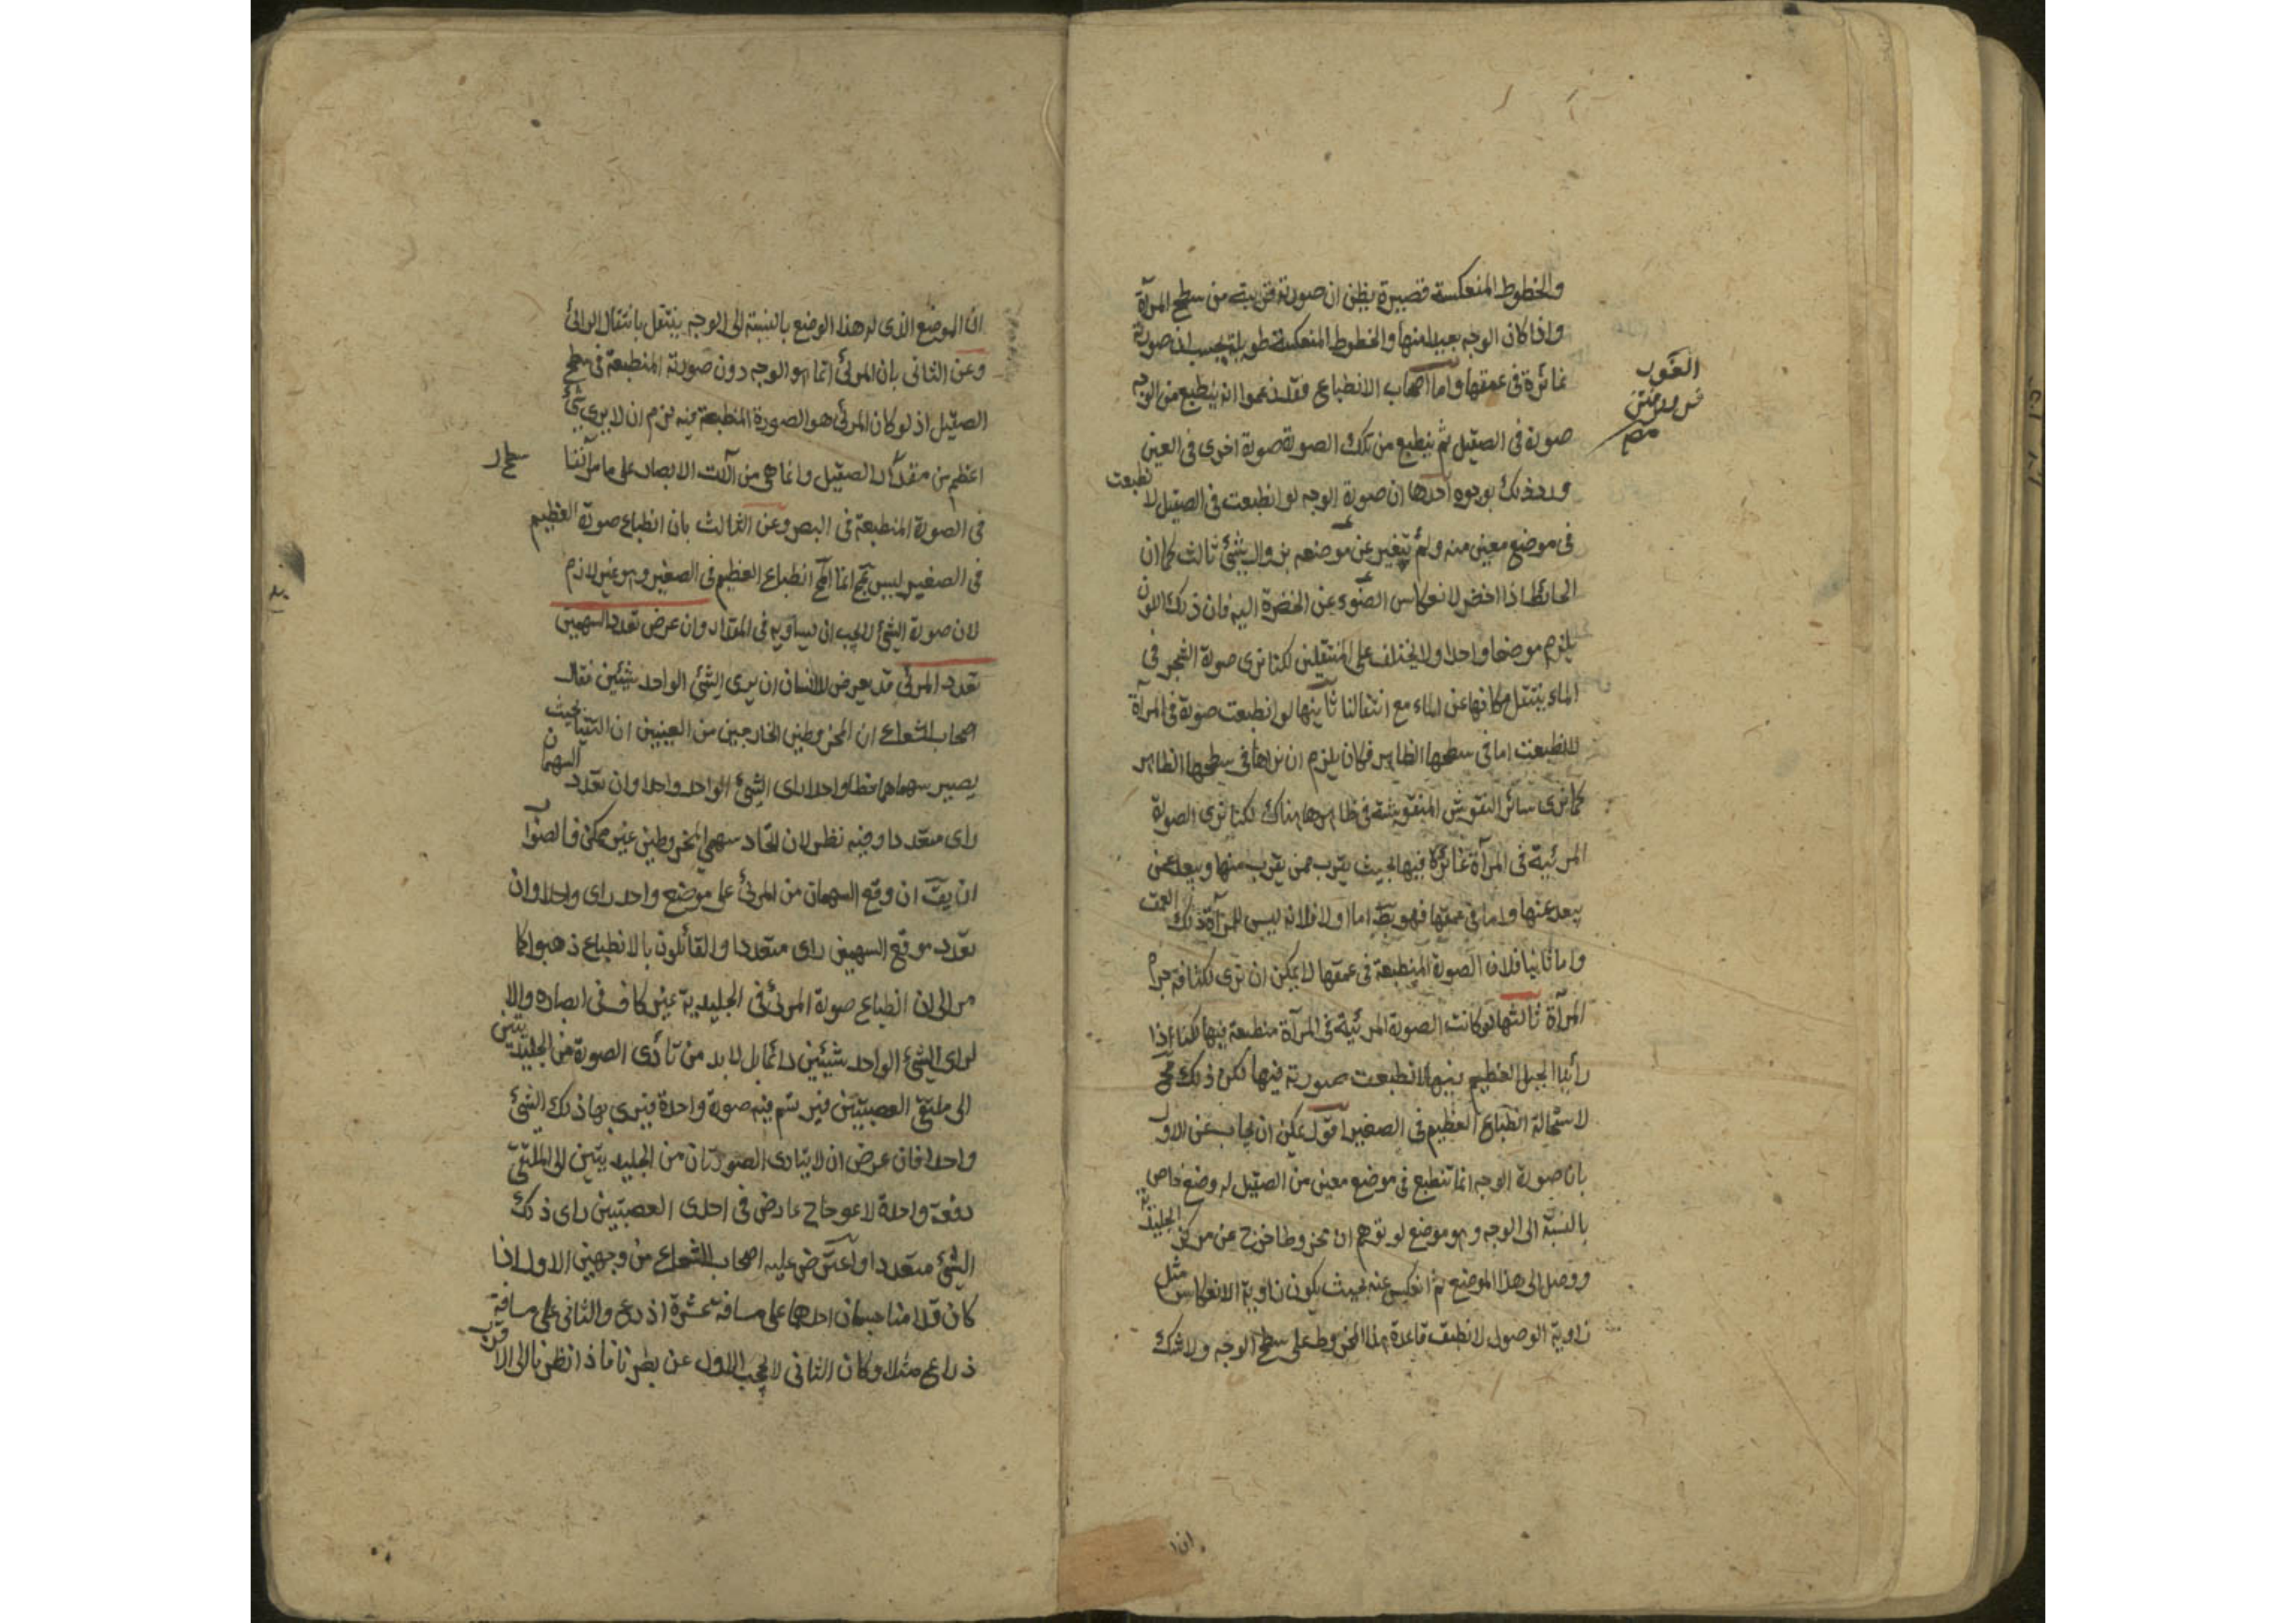 والخطوط المنعكسة قصيرة يظن ان صورته قريبة من سطح المرآة
واذا كان الوجه بعيدا منها والخطوط المنعكسة طويلة يحسب ان صورته
غائرة في عمقها واما اصحاب الانطباع فقد زعموا انه ينطبع من الوجه
صورة في الصقيل ثم ينطبع من تلك الصورة صورة اخرى في العين
ورد ذلك بوجوه احدها ان صورة الوجه لو انطبعت في الصقيل لانطبعت
في موضع معين منه ولم يتغير عن موضعه بزوال شئ ثالث كما ان
الحائط اذا اخضر لانعكاس الضوء عن الخضرة اليه فان ذلك اللون
يلزم موضعا واحدا ولا يختلف على المنتقلين لكنا نرى صورة الشجر في
الماء ينتقل مكانها عن الماء مع انتقالنا ثانيها لو انطبعت صورة في المرآة
لانطبعت اما في سطحها الظاهر فكان يلزم ان نراها في سطحها الظاهر
كما نرى سائر النقوش المنقوشة في ظاهرها هناك لكنا نرى الصورة
المرئية في المرآة غائرة فيها بحيث يقرب ممن يقرب منها ويبعد عمن
يبعد عنها واما في عمقها فهو بط اما اولا فلانه ليس للمرآة ذلك العمق
واما ثانيا فلان الصورة المنطبعة في عمقها لا يمكن ان ترى لكثافة جرم
المرآة ثالثها لو كانت الصورة المرئية في المرآة منطبعة فيها لكنا اذا
رأينا الجبل العظيم فيها لانطبعت صورته فيها لكن ذلك مح
لاستحالة انطباع العظيم في الصغير اقول يمكن ان يجاب عن الاول
بان صورة الوجه انما تنطبع في موضع معين من الصقيل له وضع خاص
بالنسبة الى الوجه وهو موضع لو توهم ان مخروطا خرج عن مركز الجليدية
ووصل الى هذا الموضع ثم انعكس عنه بحيث يكون زاوية الانعكاس مثل
زاوية الوصول لانطبق قاعدة هذا المخروط على سطح الوجه ولا شك
ان ا
الغور
ان الموضع الذى له هذا الوضع بالنسبة الى الوجه ينتقل بانتقال الرائى
وعن الثانى بان المرئى انما هو الوجه دون صورته المنطبعة في سطح
الصقيل اذ لو كان المرئى هو الصورة المنطبعة فيه لزم ان لا يرى شئ
اعظم من مقدار الصقيل وانما هى من آلات الابصار على ما مر آنفا
في الصورة المنطبعة في البصر وعن الثالث بان انطباع صورة العظيم
في الصغير ليس بمح انما المح انطباع العظيم في الصغير وهو غير لازم
لان صورة الشئ لا يجب ان يساويه في المقدار وان عرض تعدد السهمين
تعدد المرئى قد يعرض للانسان ان يرى الشئ الواحد شيئين فقال
اصحاب الشعاع ان المخروطين الخارجين من العينين ان التقيا بحيث
يصير سهماهما خطا واحدا راى الشئ الواحد واحدا وان تعدد السهمان
راى متعددا وفيه نظر لان اتحاد سهمى المخروطين غير ممكن فالصواب
ان يق ان وقع السهمان من المرئى على موضع واحد راى واحدا وان
تعدد موقع السهمين راى متعددا والقائلون بالانطباع ذهبوا كما
مر الى ان انطباع صورة المرئى في الجليدية غير كاف في ابصاره والا
لراى الشئ الواحد شيئين دائما بل لا بد من تأدى الصورة من الجليديتين
الى ملتقى العصبتين فيرتسم فيه صورة واحدة فيرى بها ذلك الشئ
واحدا فان عرض ان لا يتادى الصورتان من الجليديتين الى الملتقى
دفعة واحدة لاعوجاج عارض في احدى العصبتين راى ذلك
الشئ متعددا واعترض عليه اصحاب الشعاع من وجهين الاول اذا
كان قدامنا جسمان احدهما على مسافة عشرة اذرع والثانى على مسافة
ذراع مثلا وكان الثانى لا يحجب الاول عن بصرنا فاذا نظرنا الى الاقرب